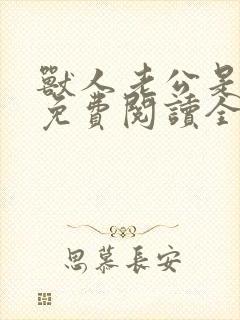 獸人老公是
免費閱讀全
思慕長安